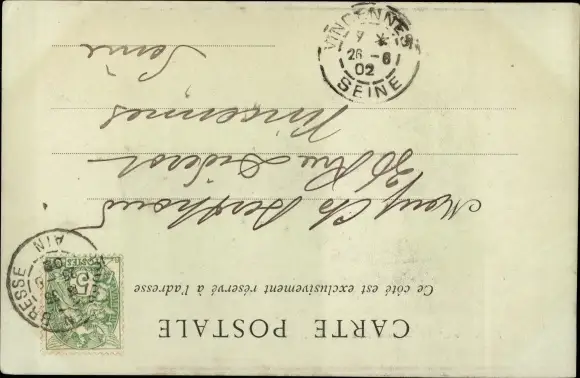 CARTE POSTALE
Ce côté est exclusivement réservé à l'adresse
Monsr Ch Berthoud
Rue Diderot
Vincennes
Seine
VINCENNES
26 - 8
02
SEINE
BRESSE
AIN
POSTES
5